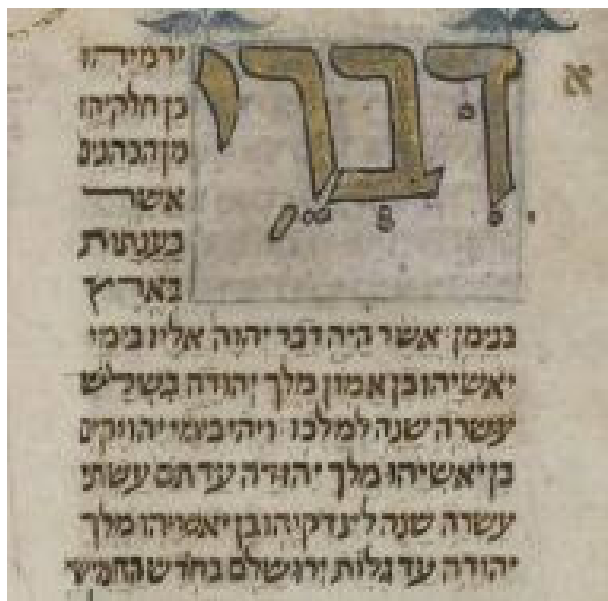 א
דברי
ירמיהו
בן חלקיהו
מן הכהנים
אשר
בענתות
בארץ
בנימן׃ אשר היה דבר יהוה אליו בימי
יאשיהו בן אמון מלך יהודה בשלש
עשרה שנה למלכו׃ ויהי בימי יהויקים
בן יאשיהו מלך יהודה עד תם עשתי
עשרה שנה לצדקיהו בן יאשיהו מלך
יהודה עד גלות ירושלם בחדש החמישי